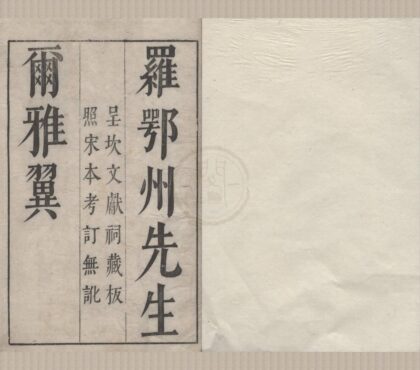 羅鄂州先生
呈坎文獻祠藏板
照宋本考訂無訛
爾雅翼